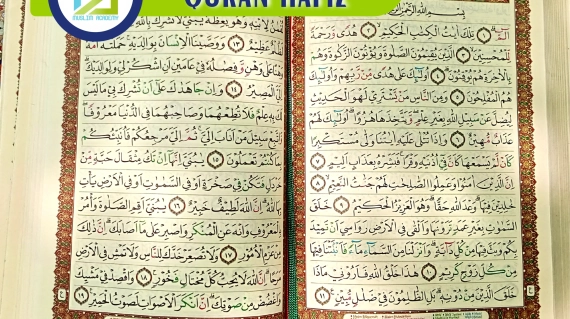 MUSLIM ACADEMY
QURAN HAFIZ
بِسْمِ اللَّهِ الرَّحْمَٰنِ الرَّحِيمِ
الٓمٓ ١ تِلْكَ ءَايَٰتُ الْكِتَٰبِ الْحَكِيمِ ٢ هُدًى وَرَحْمَةً
لِّلْمُحْسِنِينَ ٣ الَّذِينَ يُقِيمُونَ الصَّلَوٰةَ وَيُؤْتُونَ الزَّكَوٰةَ وَهُم
بِالْأَخِرَةِ هُمْ يُوقِنُونَ ٤ أُو۟لَٰٓئِكَ عَلَىٰ هُدًى مِّن رَّبِّهِمْ وَأُو۟لَٰٓئِكَ
هُمُ الْمُفْلِحُونَ ٥ وَمِنَ النَّاسِ مَن يَشْتَرِى لَهْوَ الْحَدِيثِ
لِيُضِلَّ عَن سَبِيلِ اللَّهِ بِغَيْرِ عِلْمٍ وَيَتَّخِذَهَا هُزُوًا أُو۟لَٰٓئِكَ لَهُمْ
عَذَابٌ مُّهِينٌ ٦ وَإِذَا تُتْلَىٰ عَلَيْهِ ءَايَٰتُنَا وَلَّىٰ مُسْتَكْبِرًا
كَأَن لَّمْ يَسْمَعْهَا كَأَنَّ فِىٓ أُذُنَيْهِ وَقْرًا فَبَشِّرْهُ بِعَذَابٍ أَلِيمٍ ٧
إِنَّ الَّذِينَ ءَامَنُوا وَعَمِلُوا الصَّٰلِحَٰتِ لَهُمْ جَنَّٰتُ النَّعِيمِ ٨
خَٰلِدِينَ فِيهَا وَعْدَ اللَّهِ حَقًّا وَهُوَ الْعَزِيزُ الْحَكِيمُ ٩ خَلَقَ
السَّمَٰوَٰتِ بِغَيْرِ عَمَدٍ تَرَوْنَهَا وَأَلْقَىٰ فِى الْأَرْضِ رَوَٰسِىَ أَن تَمِيدَ
بِكُمْ وَبَثَّ فِيهَا مِن كُلِّ دَآبَّةٍ وَأَنزَلْنَا مِنَ السَّمَآءِ مَآءً فَأَنبَتْنَا فِيهَا
مِن كُلِّ زَوْجٍ كَرِيمٍ ١٠ هَٰذَا خَلْقُ اللَّهِ فَأَرُونِى مَاذَا
خَلَقَ الَّذِينَ مِن دُونِهِ بَلِ الظَّٰلِمُونَ فِى ضَلَٰلٍ مُّبِينٍ ١١
لِابْنِهِ وَهُوَ يَعِظُهُ يَٰبُنَىَّ لَا تُشْرِكْ بِاللَّهِ
لَظُلْمٌ عَظِيمٌ ١٣ وَوَصَّيْنَا الْإِنسَٰنَ بِوَٰلِدَيْهِ حَمَلَتْهُ أُمُّهُ
وَهْنًا عَلَىٰ وَهْنٍ وَفِصَٰلُهُ فِى عَامَيْنِ أَنِ اشْكُرْ لِى وَلِوَٰلِدَيْكَ
إِلَىَّ الْمَصِيرُ ١٤ وَإِن جَٰهَدَاكَ عَلَىٰٓ أَن تُشْرِكَ بِى مَا لَيْسَ
لَكَ بِهِ عِلْمٌ فَلَا تُطِعْهُمَا وَصَاحِبْهُمَا فِى الدُّنْيَا مَعْرُوفًا وَ
اتَّبِعْ سَبِيلَ مَنْ أَنَابَ إِلَىَّ ثُمَّ إِلَىَّ مَرْجِعُكُمْ فَأُنَبِّئُكُم
بِمَا كُنتُمْ تَعْمَلُونَ ١٥ يَٰبُنَىَّ إِنَّهَآ إِن تَكُ مِثْقَالَ حَبَّةٍ مِّنْ
خَرْدَلٍ فَتَكُن فِى صَخْرَةٍ أَوْ فِى السَّمَٰوَٰتِ أَوْ فِى الْأَرْضِ يَأْتِ
بِهَا اللَّهُ إِنَّ اللَّهَ لَطِيفٌ خَبِيرٌ ١٦ يَٰبُنَىَّ أَقِمِ الصَّلَوٰةَ وَأْمُرْ
بِالْمَعْرُوفِ وَانْهَ عَنِ الْمُنكَرِ وَاصْبِرْ عَلَىٰ مَآ أَصَابَكَ إِنَّ ذَٰلِكَ
مِنْ عَزْمِ الْأُمُورِ ١٧ وَلَا تُصَعِّرْ خَدَّكَ لِلنَّاسِ وَلَا تَمْشِ فِى الْأَرْضِ
مَرَحًا إِنَّ اللَّهَ لَا يُحِبُّ كُلَّ مُخْتَالٍ فَخُورٍ ١٨ وَاقْصِدْ فِى مَشْيِكَ
وَاغْضُضْ مِن صَوْتِكَ إِنَّ أَنكَرَ الْأَصْوَٰتِ لَصَوْتُ الْحَمِيرِ ١٩